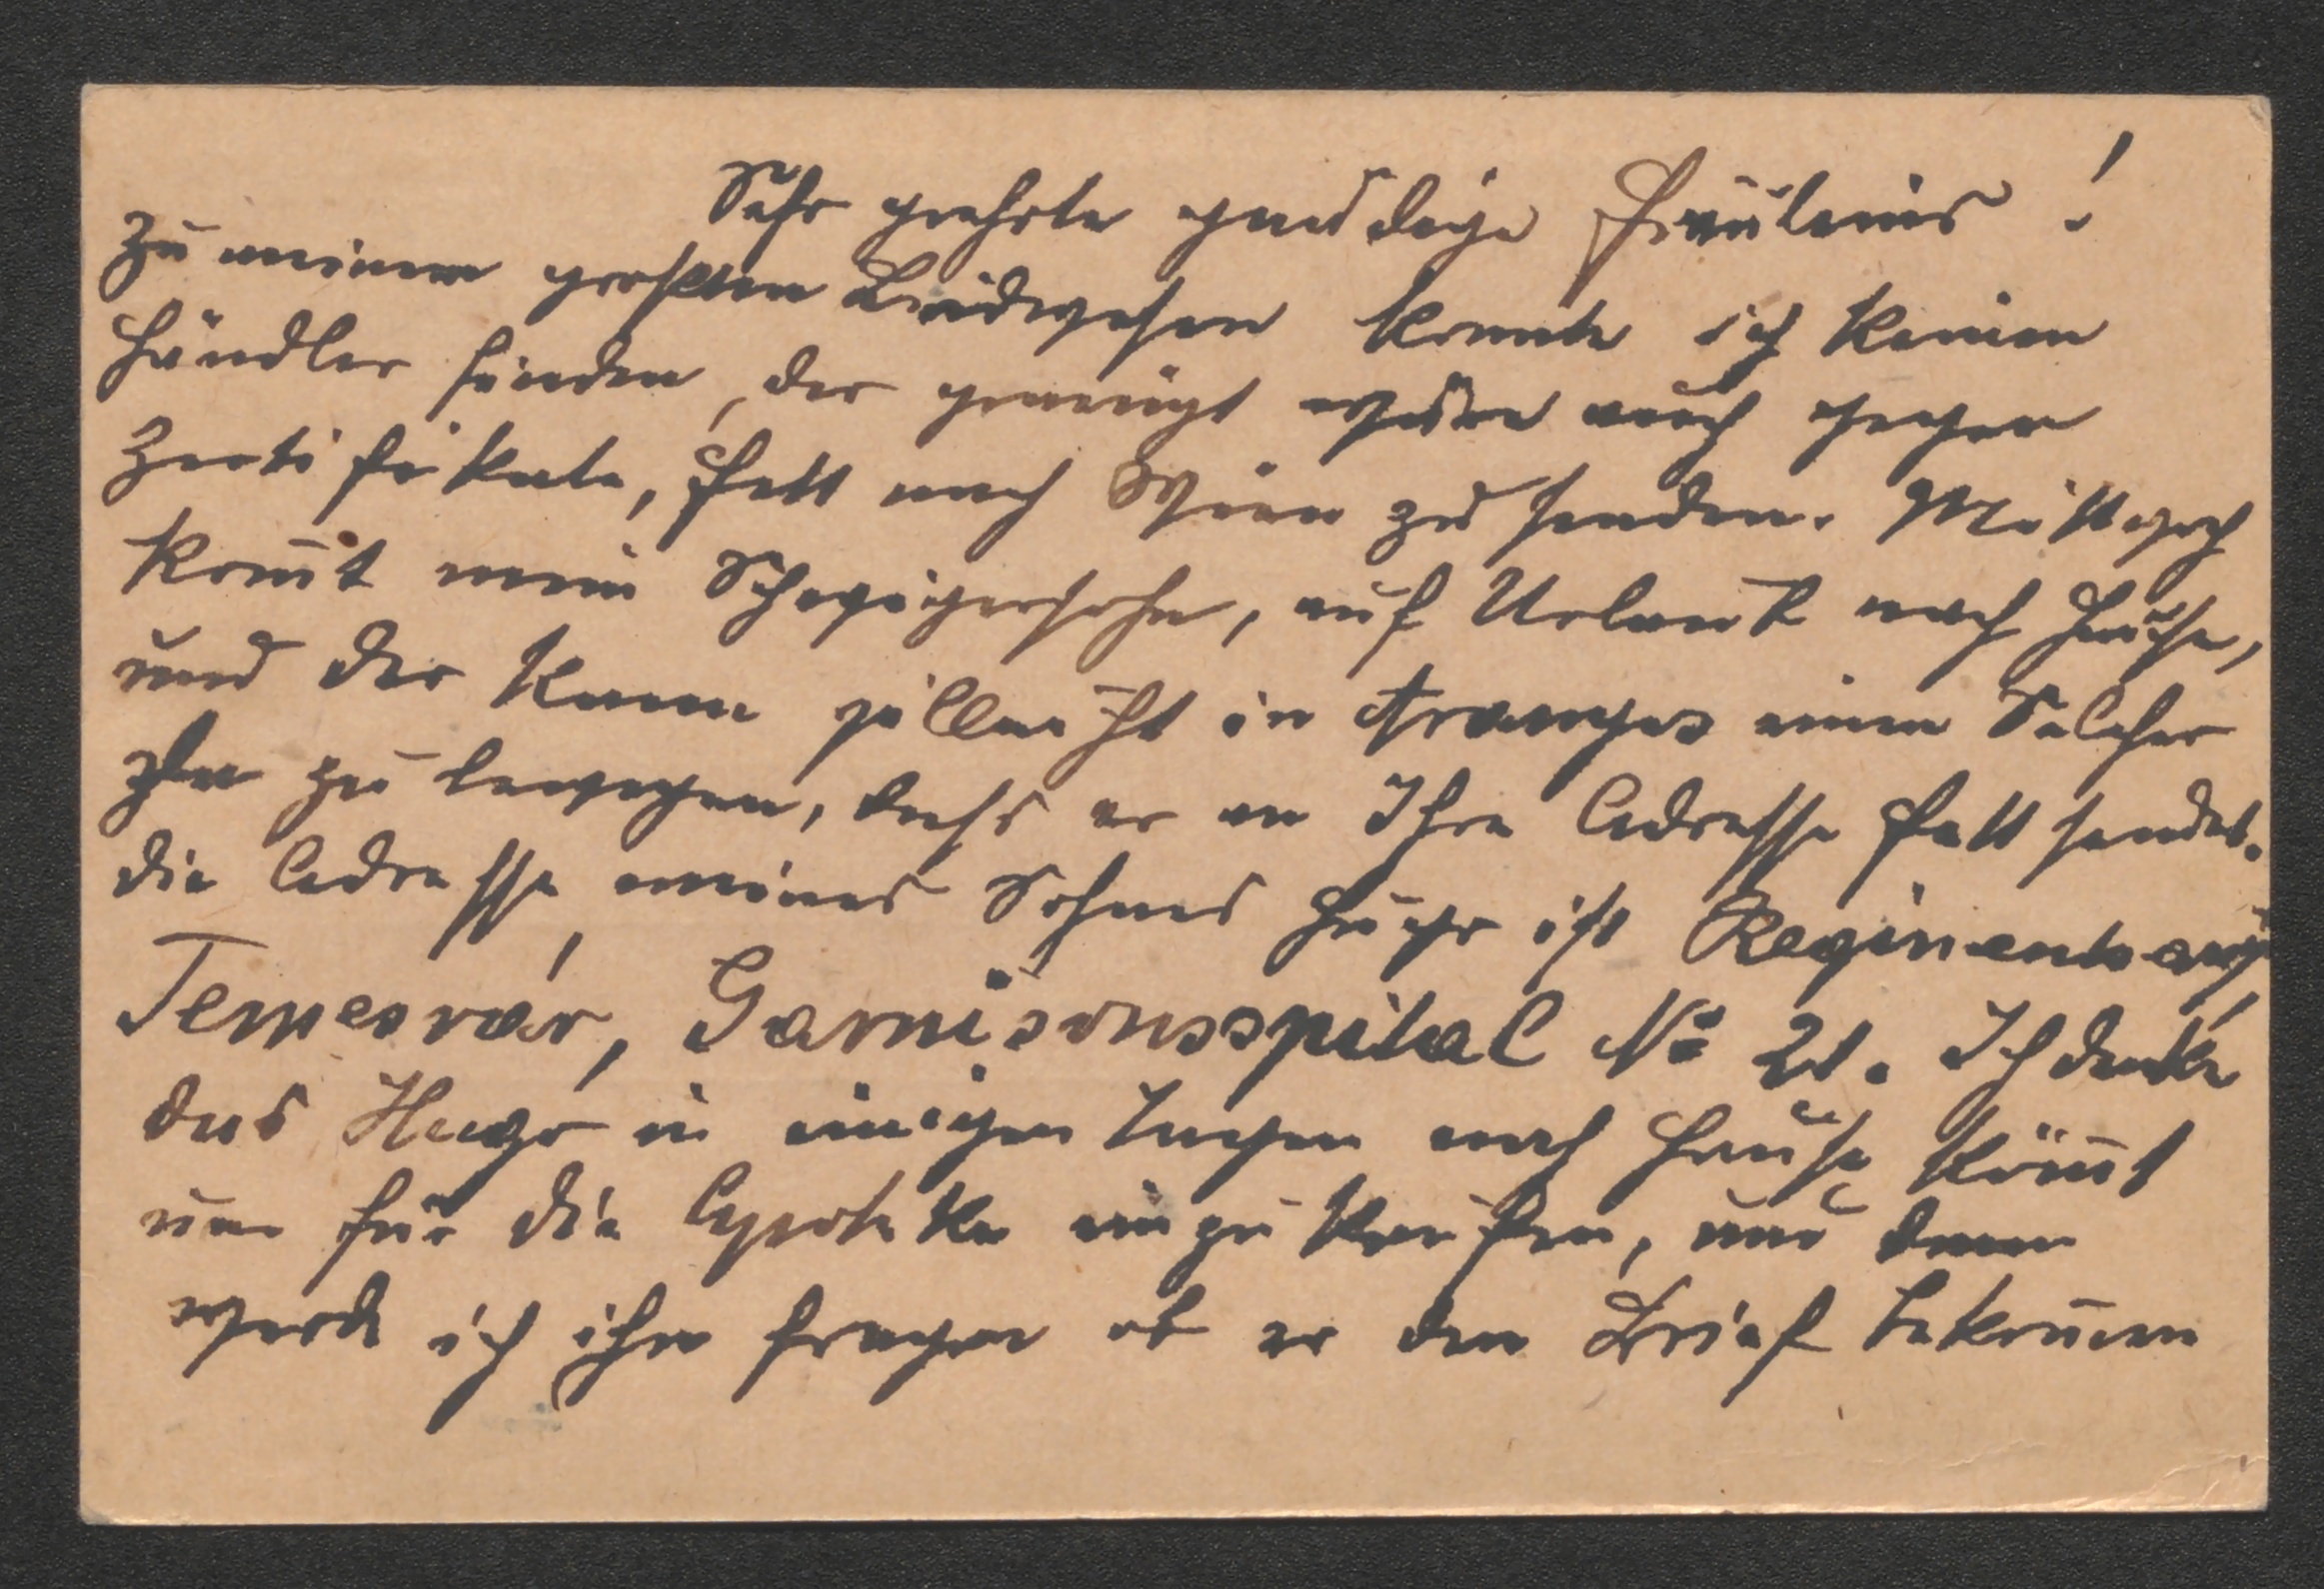 Sehr geehrte gnädige Fräuleins!
Zu meinem großten Leidwesen konnte ich keinen
Händler finden, der geneigt wäre auch gegen
Zertifikate, Fett nach Wien zu senden. Mittwoch
kom̄t mein Schwigersohn, auf Urlaub nach Hause,
und der kann villeicht in Aranyos einen Selcher
zu bewegen, dahs er an Ihre Adresse Fett sendet.
die Adresse meines Sohnes Hugo ist Regimentsarzt
Temesvár, Garnisonsspital No 21. Ich denke
das Hugo in einigen Tagen nach Hause köm̄t
um für die Apoteke einzukaufen, und dann
werde ich ihn fragen ob er den Brief bekom̄en